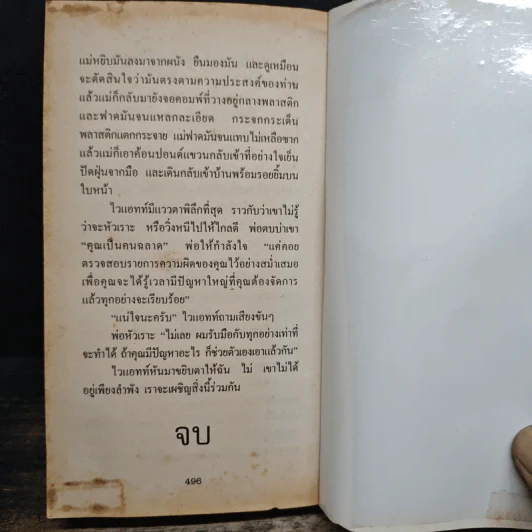 แม่หยิบมันลงมาจากผนัง ยืนมองมัน และดูเหมือน
จะตัดสินใจว่ามันตรงตามความประสงค์ของท่าน
แล้วแม่ก็กลับมายังจอคอมพ์ที่วางอยู่กลางพลาสติก
และฟาดมันจนแหลกละเอียด กระจกกระเด็น
พลาสติกแตกกระจาย แม่ฟาดมันจนแทบไม่เหลือซาก
แล้วแม่ก็เอาค้อนปอนด์แขวนกลับเข้าที่อย่างใจเย็น
ปัดฝุ่นจากมือ และเดินกลับเข้าบ้านพร้อมรอยยิ้มบน
ใบหน้า
ไวแอทท์มีแววตาพิลึกที่สุด ราวกับว่าเขาไม่รู้
ว่าจะหัวเราะ หรือวิ่งหนีไปให้ไกลดี พ่อตบบ่าเขา
“คุณเป็นคนฉลาด” พ่อให้กำลังใจ “แค่คอย
ตรวจสอบรายการความผิดของคุณไว้อย่างสม่ำเสมอ
เพื่อคุณจะได้รู้เวลามีปัญหาใหญ่ที่คุณต้องจัดการ
แล้วทุกอย่างจะเรียบร้อย”
“แน่ใจนะครับ” ไวแอทท์ถามเสียงขันๆ
พ่อหัวเราะ “ไม่เลย ผมรับมือกับทุกอย่างเท่าที่
จะทำได้ ถ้าคุณมีปัญหาอะไร ก็ช่วยตัวเองเอาแล้วกัน”
ไวแอทท์หันมาขยิบตาให้ฉัน ไม่ เขาไม่ได้
อยู่เพียงลำพัง เราจะเผชิญสิ่งนี้ร่วมกัน
จบ
496